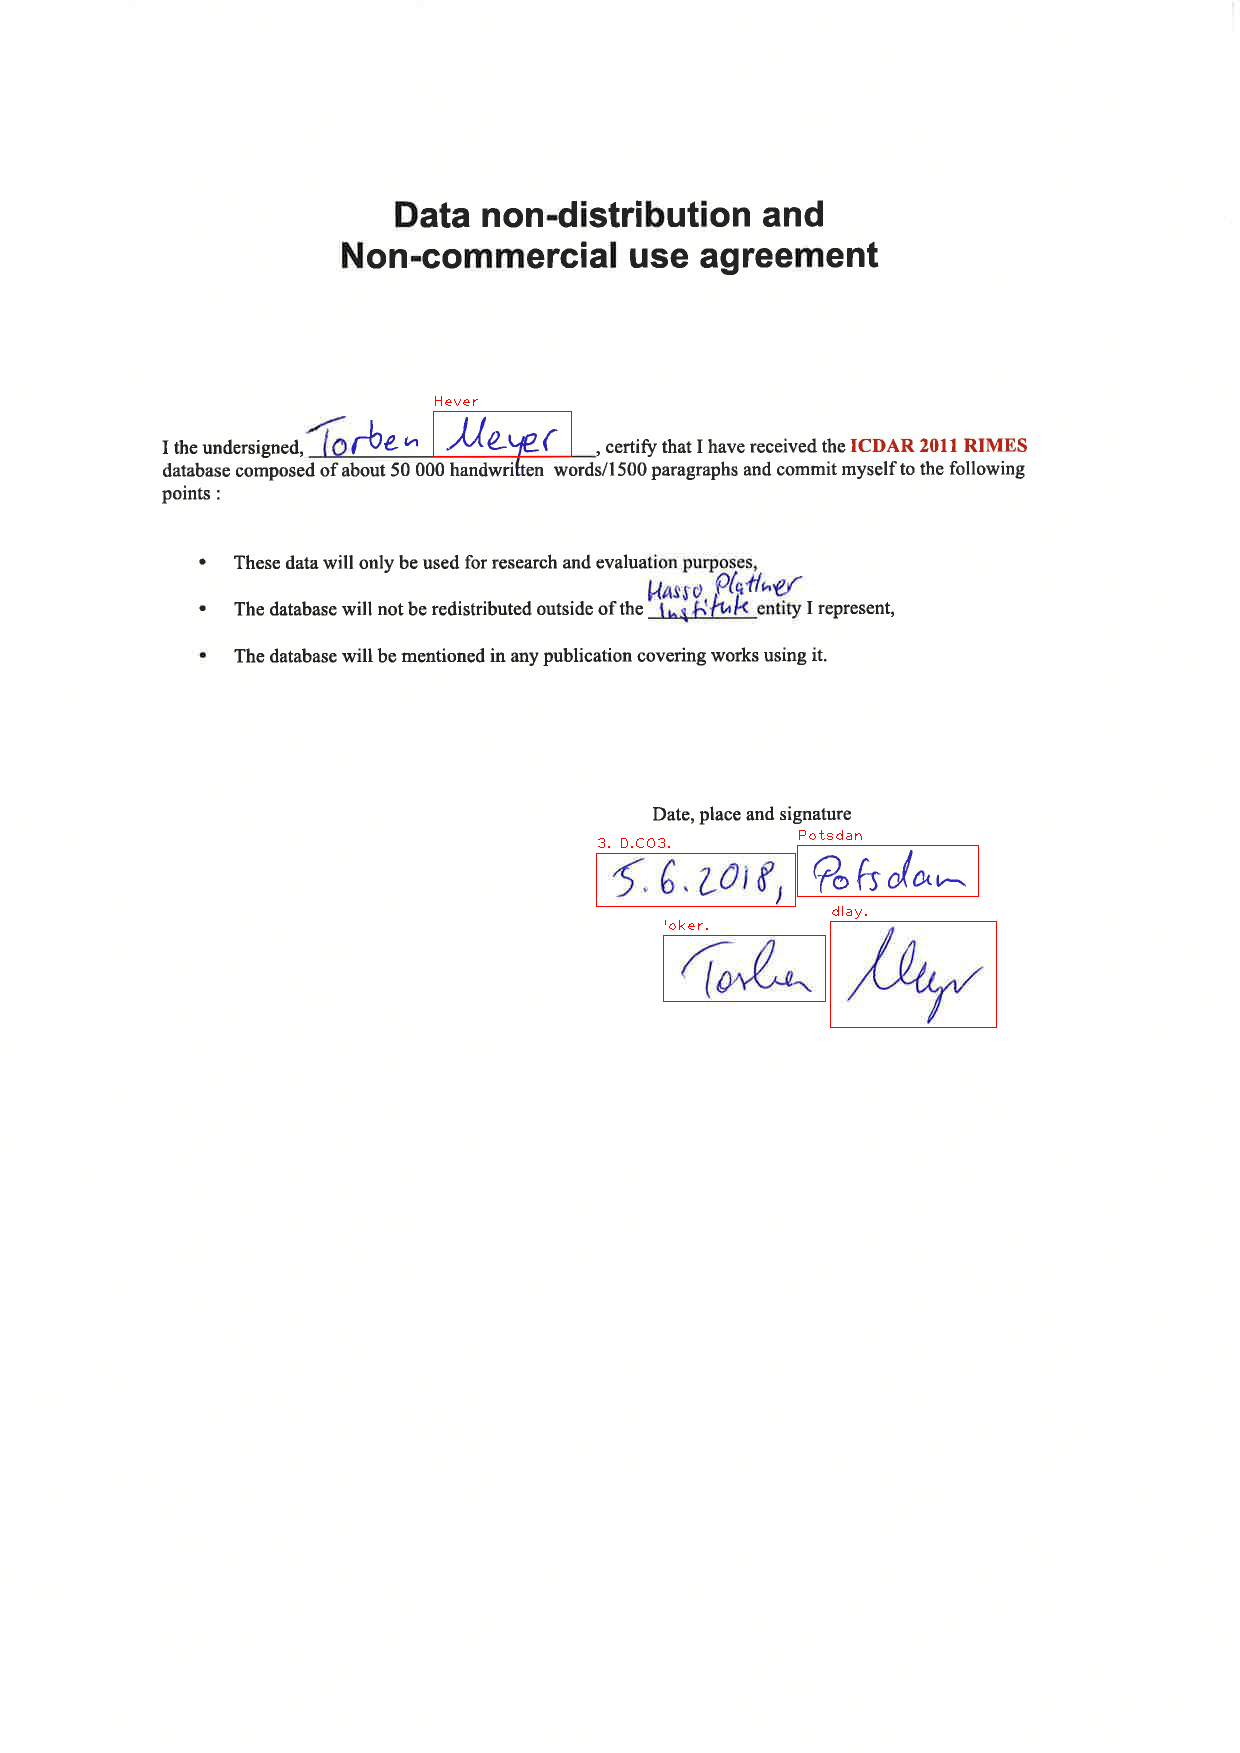 Data non-distribution and
Non-commercial use agreement
Hever
I the undersigned, Torben Meyer, certify that I have received the ICDAR 2011 RIMES
database composed of about 50 000 handwritten words/1500 paragraphs and commit myself to the following
points :
• These data will only be used for research and evaluation purposes,
Hasso Plattner
• The database will not be redistributed outside of the Institute entity I represent,
• The database will be mentioned in any publication covering works using it.
Date, place and signature
3. D.CO3. Potsdan
5.6.2018, Potsdam
'oker. dlay.
Torben Meyer